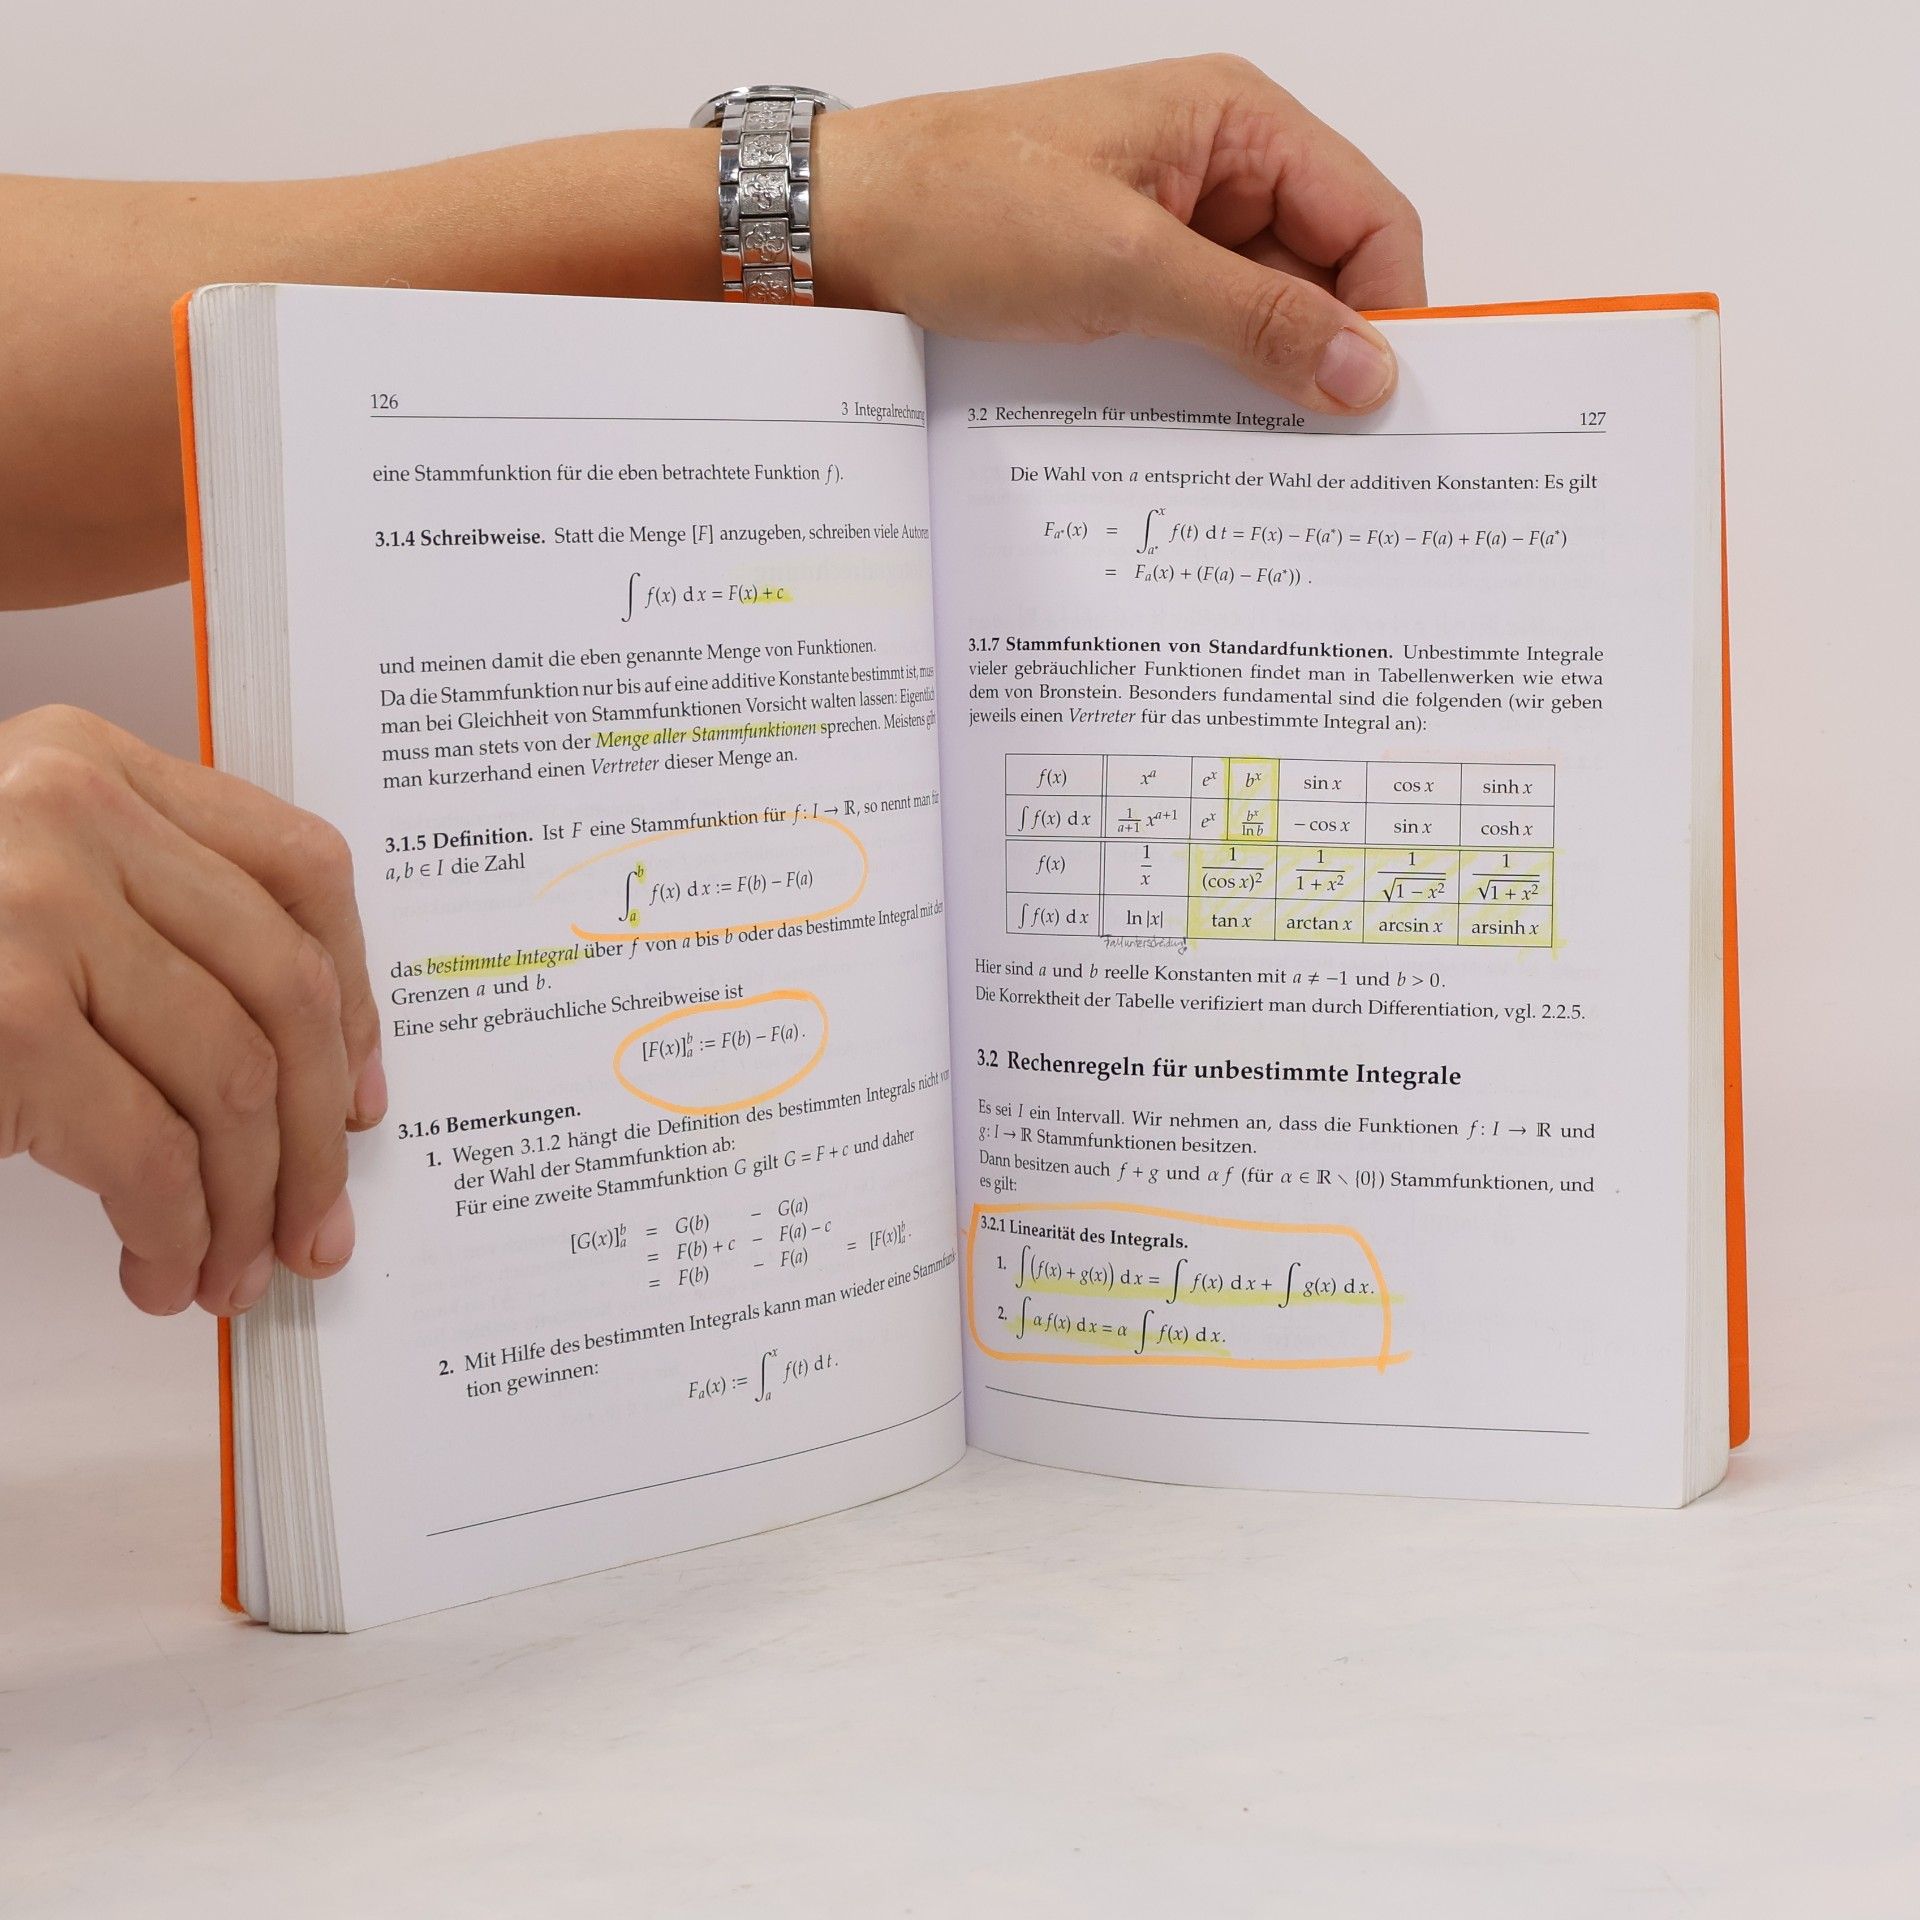 126
3 Integralrechnung
eine Stammfunktion für die eben betrachtete Funktion f).
3.1.4 Schreibweise. Statt die Menge [F] anzugeben, schreiben viele Autoren
∫ f(x) dx = F(x) + c
und meinen damit die eben genannte Menge von Funktionen.
Da die Stammfunktion nur bis auf eine additive Konstante bestimmt ist, muss
man bei Gleichheit von Stammfunktionen Vorsicht walten lassen: Eigentlich
muss man stets von der Menge aller Stammfunktionen sprechen. Meistens gibt
man kurzerhand einen Vertreter dieser Menge an.
3.1.5 Definition. Ist F eine Stammfunktion für f: I → ℝ, so nennt man für
a, b ∈ I die Zahl
∫_a^b f(x) dx := F(b) − F(a)
das bestimmte Integral über f von a bis b oder das bestimmte Integral mit den
Grenzen a und b.
Eine sehr gebräuchliche Schreibweise ist
[F(x)]_a^b := F(b) − F(a).
3.1.6 Bemerkungen.
1. Wegen 3.1.2 hängt die Definition des bestimmten Integrals nicht von
der Wahl der Stammfunktion ab:
Für eine zweite Stammfunktion G gilt G = F + c und daher
[G(x)]_a^b = G(b) − G(a)
= F(b) + c − F(a) − c
= F(b) − F(a) = [F(x)]_a^b.
2. Mit Hilfe des bestimmten Integrals kann man wieder eine Stammfunk-
tion gewinnen:
F_a(x) := ∫_a^x f(t) dt.
3.2 Rechenregeln für unbestimmte Integrale
127
Die Wahl von a entspricht der Wahl der additiven Konstanten: Es gilt
F_{a*}(x) = ∫_{a*}^x f(t) dt = F(x) − F(a*) = F(x) − F(a) + F(a) − F(a*)
= F_a(x) + (F(a) − F(a*)) .
3.1.7 Stammfunktionen von Standardfunktionen. Unbestimmte Integrale
vieler gebräuchlicher Funktionen findet man in Tabellenwerken wie etwa
dem von Bronstein. Besonders fundamental sind die folgenden (wir geben
jeweils einen Vertreter für das unbestimmte Integral an):
f(x) x^a e^x b^x sin x cos x sinh x
∫ f(x) dx 1/(a+1) x^{a+1} e^x b^x/ln b − cos x sin x cosh x
f(x) 1/x 1/(cos x)² 1/(1 + x²) 1/√(1 − x²) 1/√(1 + x²)
∫ f(x) dx ln |x| tan x arctan x arcsin x arsinh x
Fallunterscheidung!
Hier sind a und b reelle Konstanten mit a ≠ −1 und b > 0.
Die Korrektheit der Tabelle verifiziert man durch Differentiation, vgl. 2.2.5.
3.2 Rechenregeln für unbestimmte Integrale
Es sei I ein Intervall. Wir nehmen an, dass die Funktionen f: I → ℝ und
g: I → ℝ Stammfunktionen besitzen.
Dann besitzen auch f + g und α f (für α ∈ ℝ \ {0}) Stammfunktionen, und
es gilt:
3.2.1 Linearität des Integrals.
1. ∫(f(x) + g(x)) dx = ∫ f(x) dx + ∫ g(x) dx.
2. ∫ α f(x) dx = α ∫ f(x) dx.